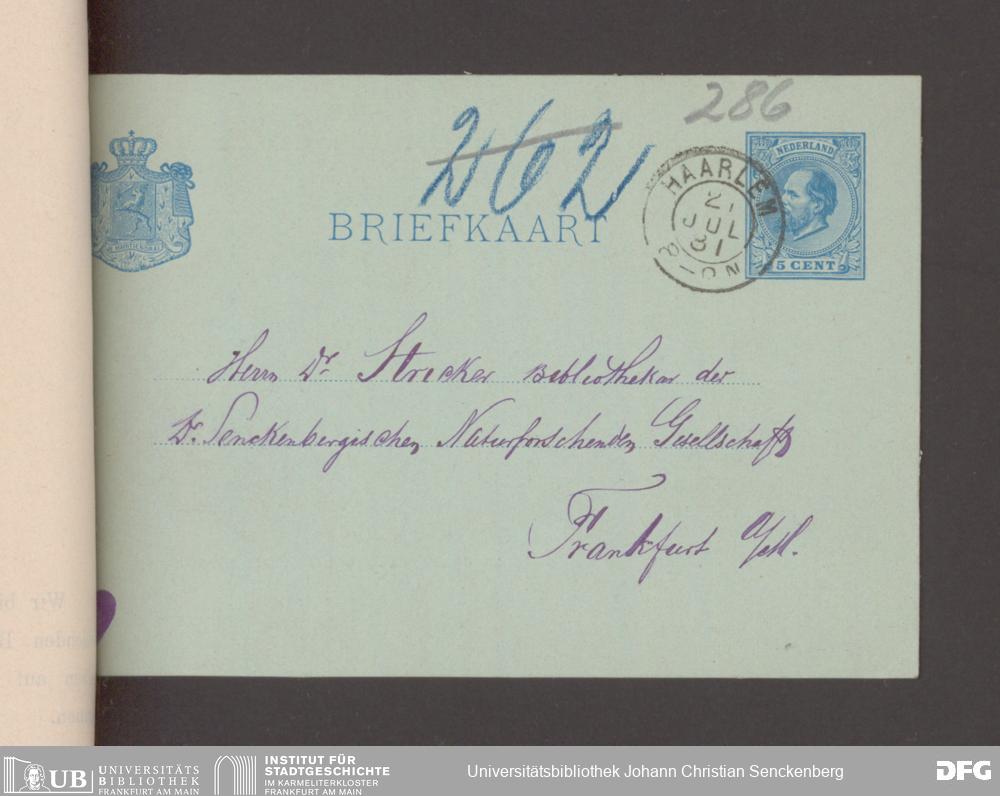 286
262
NEDERLAND
HAARLEM
21
JUL
81
8-ON
5 CENT
BRIEFKAART
Herrn Dr. Stricker Bibliothekar der
Dr. Senckenbergischen Naturforschenden Gesellschaft
Frankfurt a/M.
UB UNIVERSITÄTS
BIBLIOTHEK
FRANKFURT AM MAIN
INSTITUT FÜR
STADTGESCHICHTE
IM KARMELITERKLOSTER
FRANKFURT AM MAIN
Universitätsbibliothek Johann Christian Senckenberg
DFG